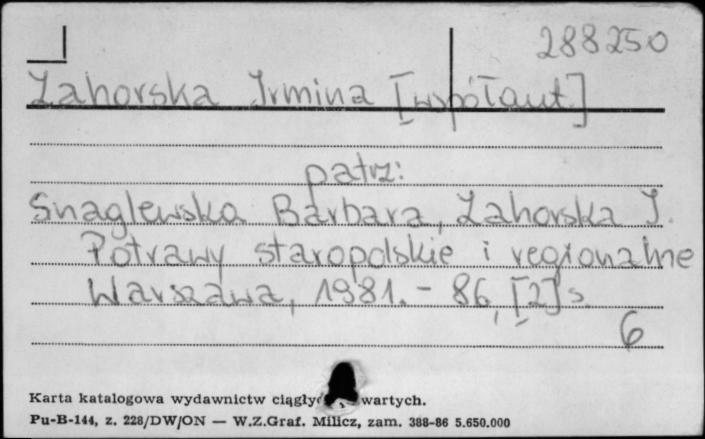 288250
Zahorska Irmina [współaut.]
patrz:
Snaglewska Barbara, Zahorska I.
Potrawy staropolskie i regionalne
Warszawa, 1981. - 86, [2] s.
6
Karta katalogowa wydawnictw wartych.
Pu-B-144, z. 228/DW/ON — W.Z.Graf. Milicz, zam. 388-86 5.650.000